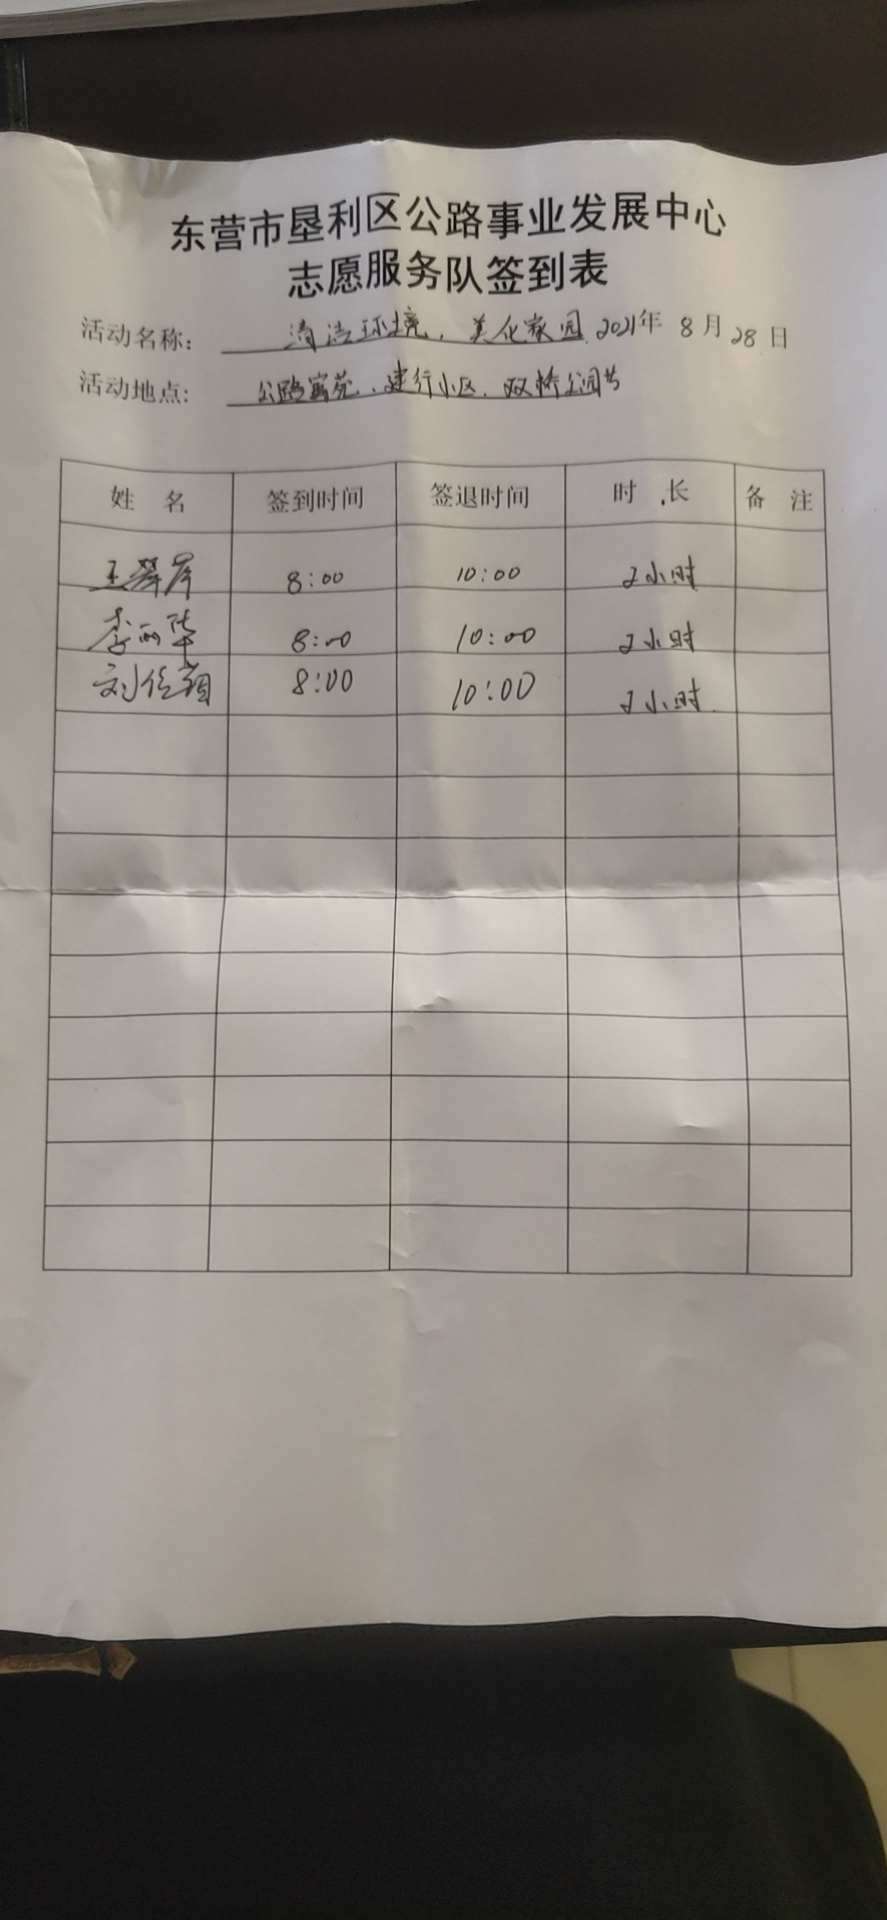 东营市垦利区公路事业发展中心
志愿服务队签到表
活动名称： 清洁环境，美化家园 2021年 8月 28日
活动地点： 公路嘉苑、建行小区、双桥公园等
姓 名 签到时间 签退时间 时 长 备 注
王 8:00 10:00 2小时
李丽华 8:00 10:00 2小时
刘佳颖 8:00 10:00 2小时